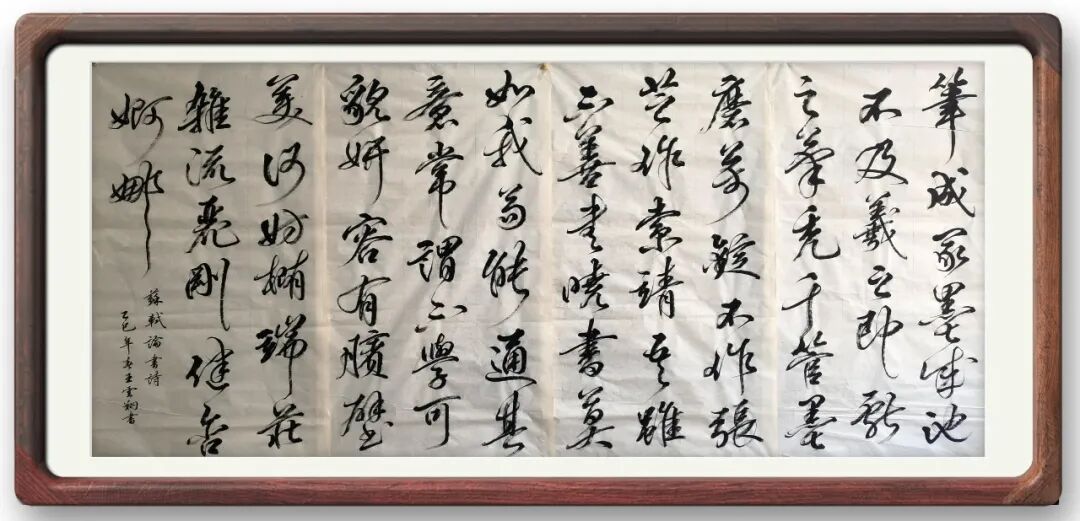 筆成冢墨成池
不及羲之即献
之筆禿千管墨
磨萬錠不作張
芝作索靖吾雖
不善書曉書莫
如我苟能通其
意常謂不學可
貌妍容有矉璧
美何妨橢端莊
雜流麗剛健含
婀娜
蘇軾論書詩
乙巳年春王雲翔書